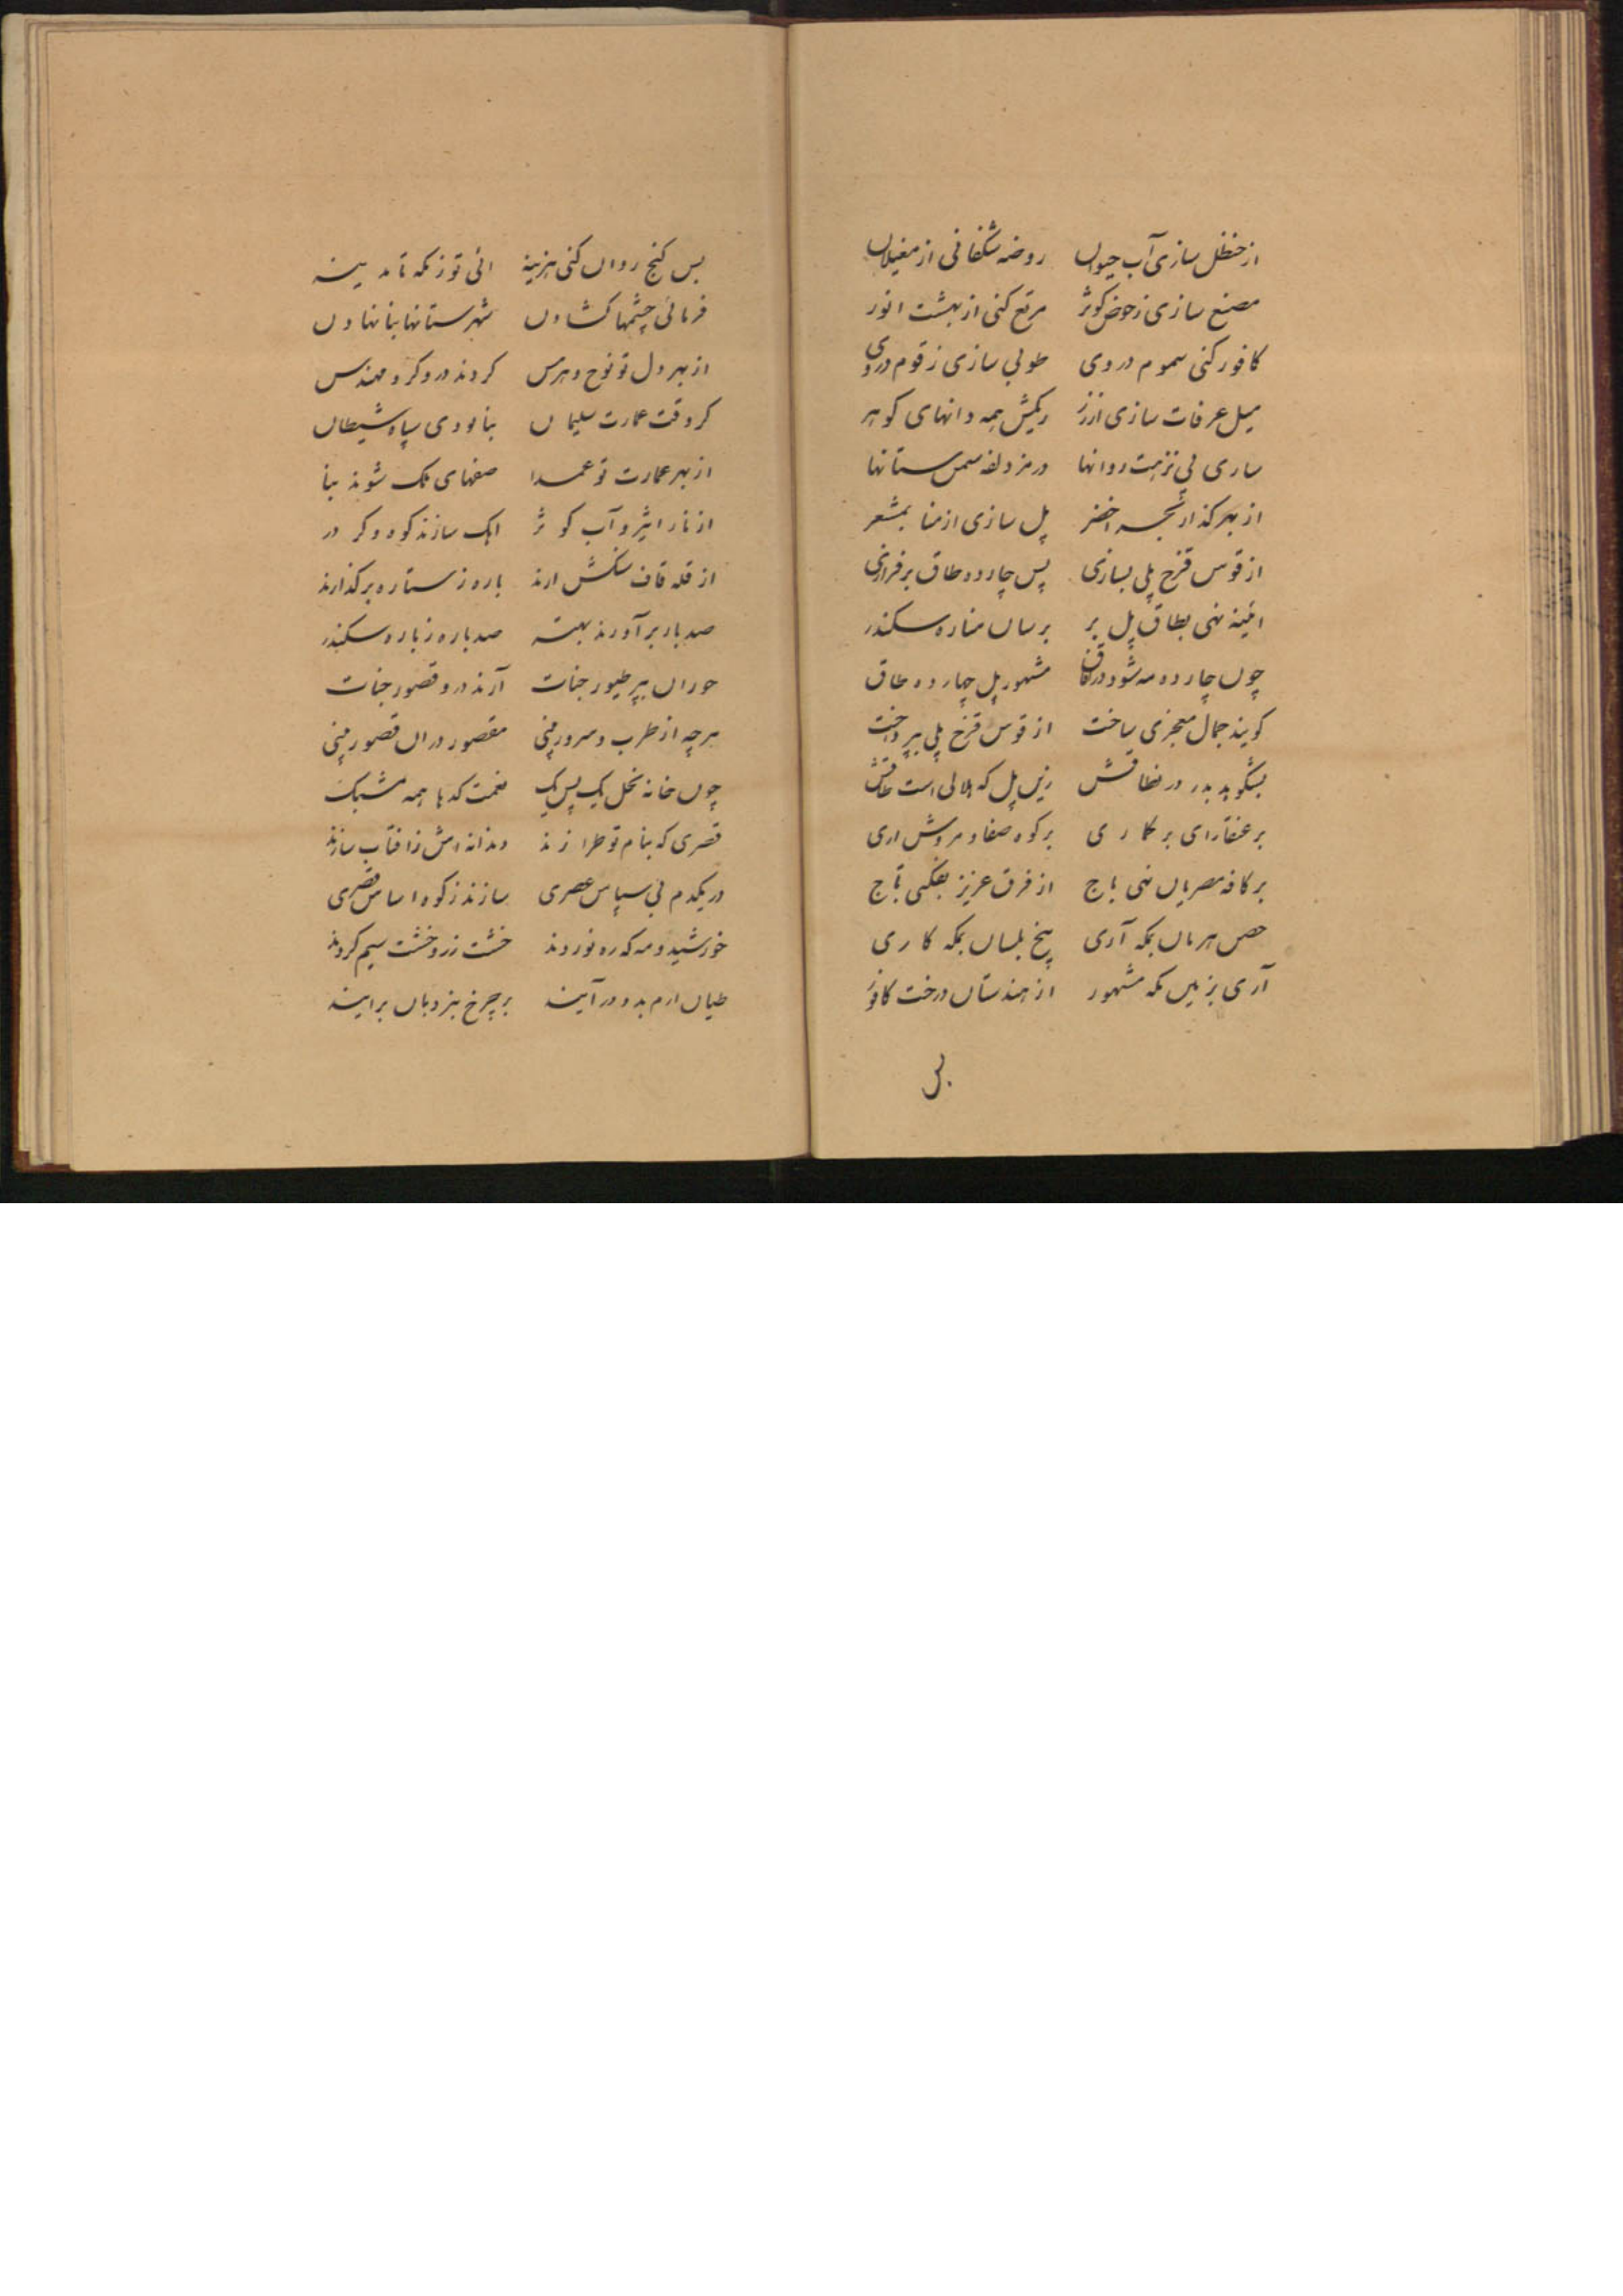 از حنظل سازی آب حیوان روضه شکفانی از مغیلان
مصنع سازی ز حوض کوثر مرتع کنی از بهشت انور
کافور کنی سموم در وی طوبی سازی زقوم در وی
میل عرفات سازی از زر ریکش همه دانهای کوهر
سازی پی نزهت روانها در مزدلفه سمن ستانها
از بهر کذار اخضر پل سازی از منا بمشعر
از قوس قزح پلی بسازی پس چارده طاق برفرازی
ائینه نهی بطاق پل بر برسان مناره سکندر
چون چارده مه شود مشهور پل چهارده طاق
کویند جمال معجزی ساخت از قوس قزح پلی بپرداخت
بدر در نطاقش زین پل که هلالی است طاقش
بر کاری بر کوه صفا و مروش اری
بر کافه مصریان نهی باج از فرق عزیز بفکنی تاج
جص هرمان بمکه آری بیخ بلسان بمکه کاری
آری بزمین مکه مشهور از هندستان درخت کافور
بس
بس کنج روان کنی هزینه ائی تو ز مکه تا مدینه
فرمائی چشمها کشادن شهرستانها بنا نهادن
از بهر دل تو نوح و هرمس کردند درودکر و مهندس
کر وقت عمارت سلیمان بنا بودی سپاه شیطان
از بهر عمارت تو عمدا صفهای ملک شوند بنا
از نار اثیر و آب کوثر اهک سازند کوه در
از قله قاف سنکش ارند باره ز ستاره برکذارند
صد بار برآورند بهتر صد باره ز باره سکندر
حوران بپر طیور جنات آرند درو قصور جنات
هرچه از طرب و سرور بینی مقصور دران قصور بینی
چون خانه نحل یک پس یک نعمت کدها همه مشبک
قصری که بنام تو طرازند دندانه اش ز افتاب سازند
در یکدم بی سپاس عصری سازند ز کوه اساس قصری
خورشید و مه که ره نوردند خشت زر و خشت سیم کردند
طیان ارم بدو در آیند بر چرخ بنردبان برایند